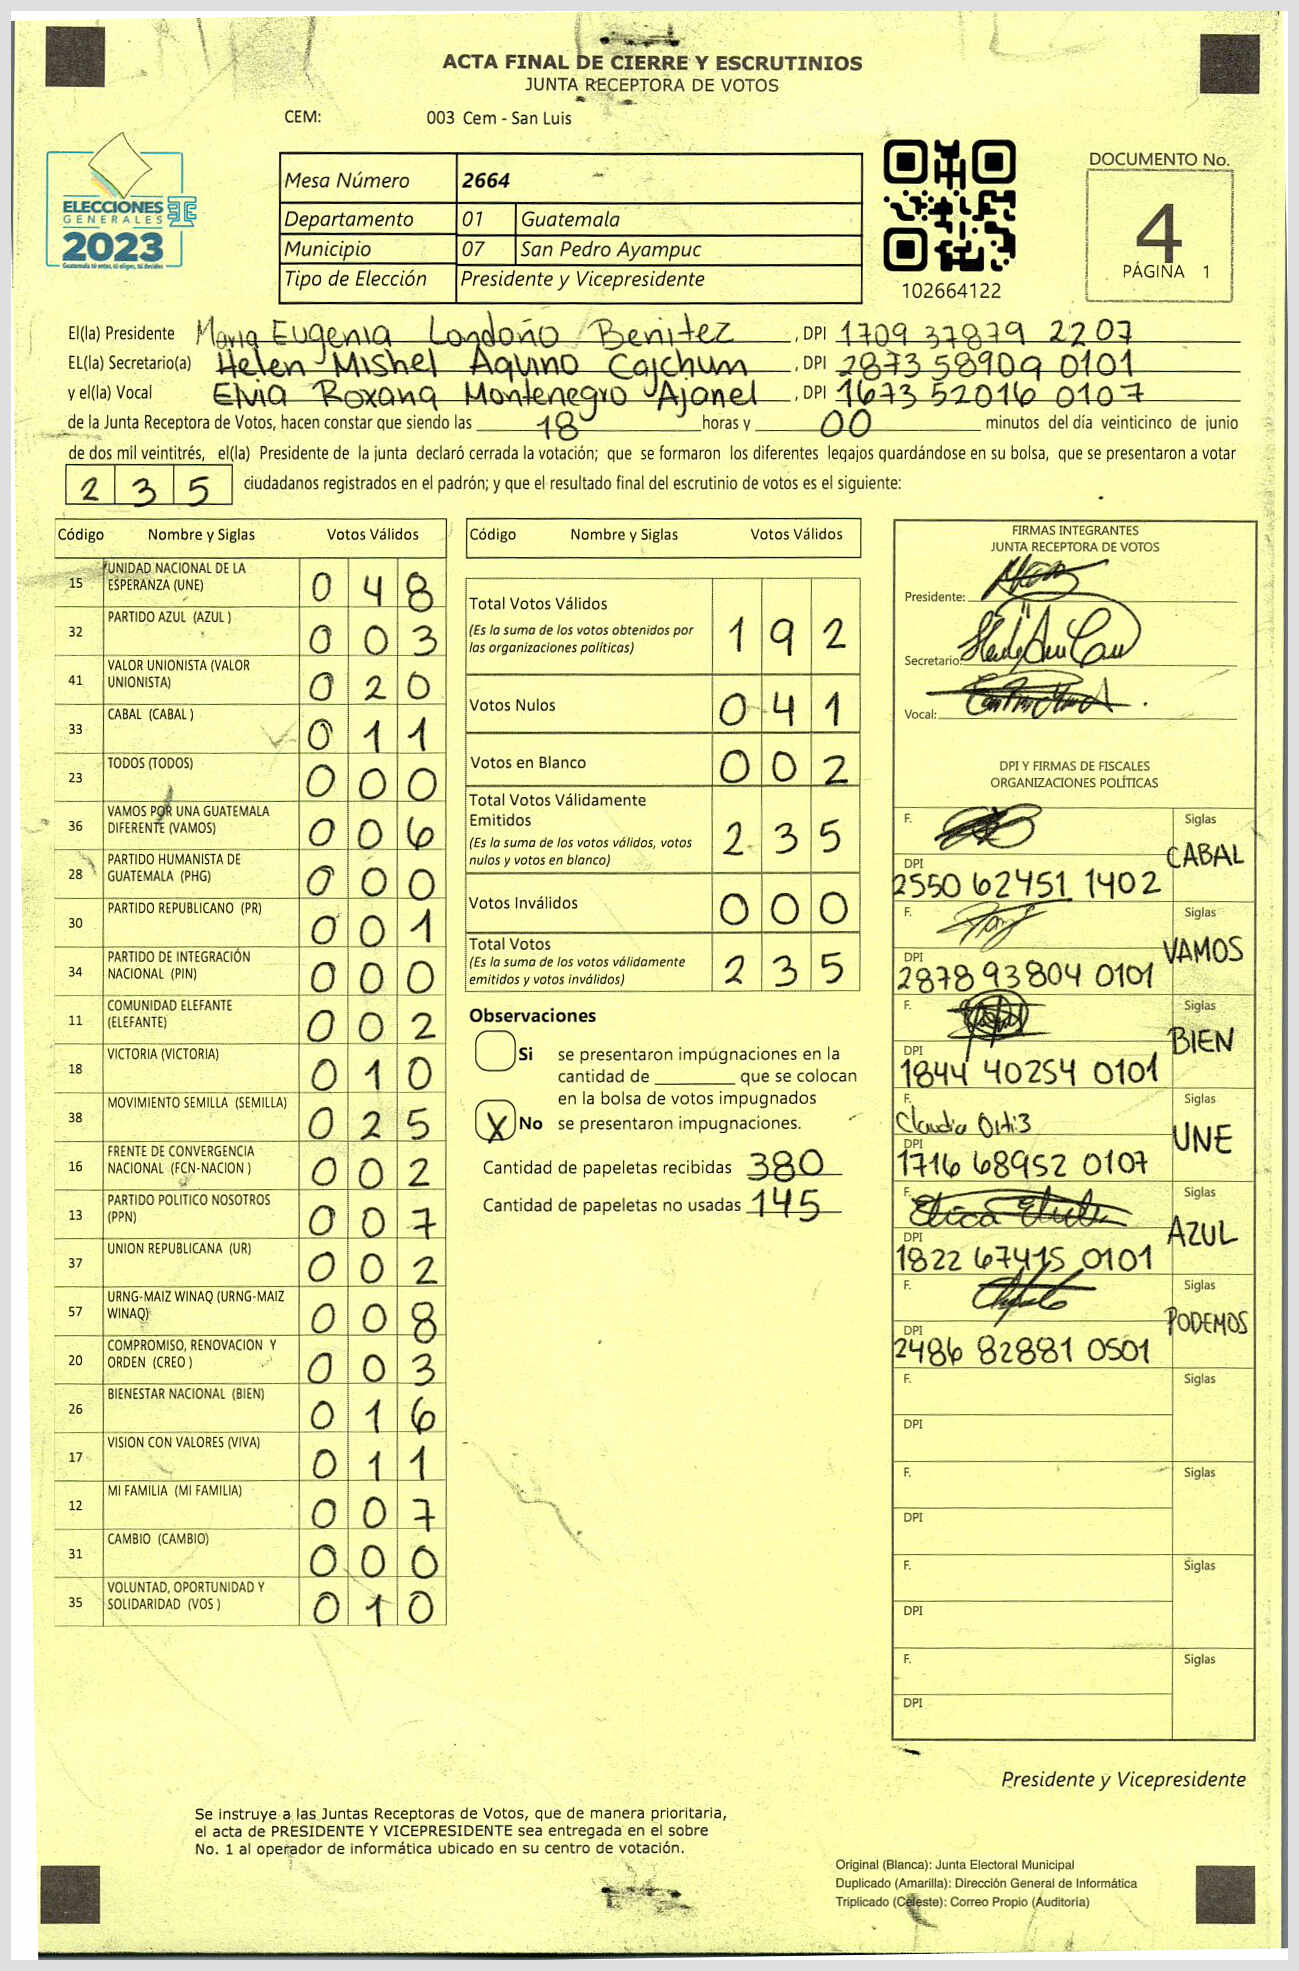 ACTA FINAL DE CIERRE Y ESCRUTINIOS
JUNTA RECEPTORA DE VOTOS
CEM: 003 Cem - San Luis
ELECCIONES
GENERALES
2023
Guatemala tú votas, tú eliges, tú decides
Mesa Número 2664
Departamento 01 Guatemala
Municipio 07 San Pedro Ayampuc
Tipo de Elección Presidente y Vicepresidente
102664122
DOCUMENTO No.
4
PÁGINA 1
El(la) Presidente Maria Eugenia Londoño Benitez, DPI 1709 37879 2207
EL(la) Secretario(a) Helen Mishel Aquino Cajchum, DPI 2873 58909 0101
y el(la) Vocal Elvia Roxana Montenegro Ajanel, DPI 1673 52016 0107
de la Junta Receptora de Votos, hacen constar que siendo las 18 horas y 00 minutos del día veinticinco de junio
de dos mil veintitrés, el(la) Presidente de la junta declaró cerrada la votación; que se formaron los diferentes legajos guardándose en su bolsa, que se presentaron a votar
235 ciudadanos registrados en el padrón; y que el resultado final del escrutinio de votos es el siguiente:
Código Nombre y Siglas Votos Válidos
15 UNIDAD NACIONAL DE LA ESPERANZA (UNE) 048
32 PARTIDO AZUL (AZUL ) 003
41 VALOR UNIONISTA (VALOR UNIONISTA) 020
33 CABAL (CABAL ) 011
23 TODOS (TODOS) 000
36 VAMOS POR UNA GUATEMALA DIFERENTE (VAMOS) 006
28 PARTIDO HUMANISTA DE GUATEMALA (PHG) 000
30 PARTIDO REPUBLICANO (PR) 001
34 PARTIDO DE INTEGRACIÓN NACIONAL (PIN) 000
11 COMUNIDAD ELEFANTE (ELEFANTE) 002
18 VICTORIA (VICTORIA) 010
38 MOVIMIENTO SEMILLA (SEMILLA) 025
16 FRENTE DE CONVERGENCIA NACIONAL (FCN-NACION ) 002
13 PARTIDO POLITICO NOSOTROS (PPN) 007
37 UNION REPUBLICANA (UR) 002
57 URNG-MAIZ WINAQ (URNG-MAIZ WINAQ) 008
20 COMPROMISO, RENOVACION Y ORDEN (CREO ) 003
26 BIENESTAR NACIONAL (BIEN) 016
17 VISION CON VALORES (VIVA) 011
12 MI FAMILIA (MI FAMILIA) 007
31 CAMBIO (CAMBIO) 000
35 VOLUNTAD, OPORTUNIDAD Y SOLIDARIDAD (VOS ) 010
Código Nombre y Siglas Votos Válidos
Total Votos Válidos 192
(Es la suma de los votos obtenidos por
las organizaciones políticas)
Votos Nulos 041
Votos en Blanco 002
Total Votos Válidamente
Emitidos 235
(Es la suma de los votos válidos, votos
nulos y votos en blanco)
Votos Inválidos 000
Total Votos 235
(Es la suma de los votos válidamente
emitidos y votos inválidos)
Observaciones
Si se presentaron impugnaciones en la
cantidad de ________ que se colocan
en la bolsa de votos impugnados
X No se presentaron impugnaciones.
Cantidad de papeletas recibidas 380
Cantidad de papeletas no usadas 145
FIRMAS INTEGRANTES
JUNTA RECEPTORA DE VOTOS
Presidente:
Secretario:
Vocal:
DPI Y FIRMAS DE FISCALES
ORGANIZACIONES POLÍTICAS
F. Siglas
CABAL
DPI
2550 62451 1402
F. Siglas
VAMOS
DPI
2878 93804 0101
F. Siglas
BIEN
DPI
1844 40254 0101
F. Siglas
Claudia Ortiz
UNE
DPI
1716 68952 0107
F. Siglas
AZUL
DPI
1822 67415 0101
F. Siglas
PODEMOS
DPI
2486 82881 0501
F. Siglas
DPI
F. Siglas
DPI
F. Siglas
DPI
F. Siglas
DPI
Presidente y Vicepresidente
Se instruye a las Juntas Receptoras de Votos, que de manera prioritaria,
el acta de PRESIDENTE Y VICEPRESIDENTE sea entregada en el sobre
No. 1 al operador de informática ubicado en su centro de votación.
Original (Blanca): Junta Electoral Municipal
Duplicado (Amarilla): Dirección General de Informática
Triplicado (Celeste): Correo Propio (Auditoría)